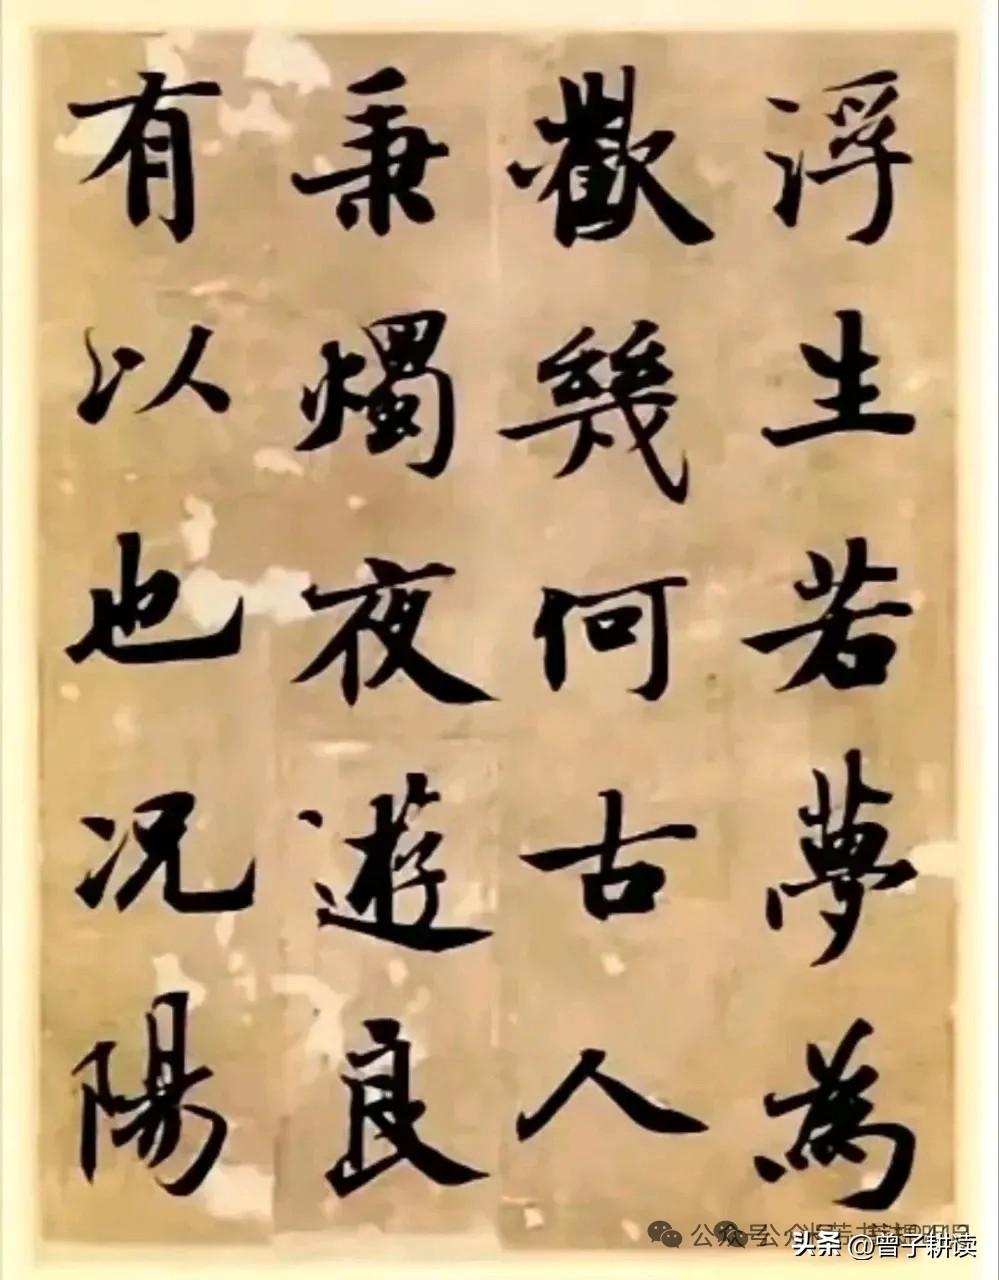 浮生若夢為
歡幾何古人
秉燭夜遊良
有以也况陽
公众号
头条 @曾子耕读